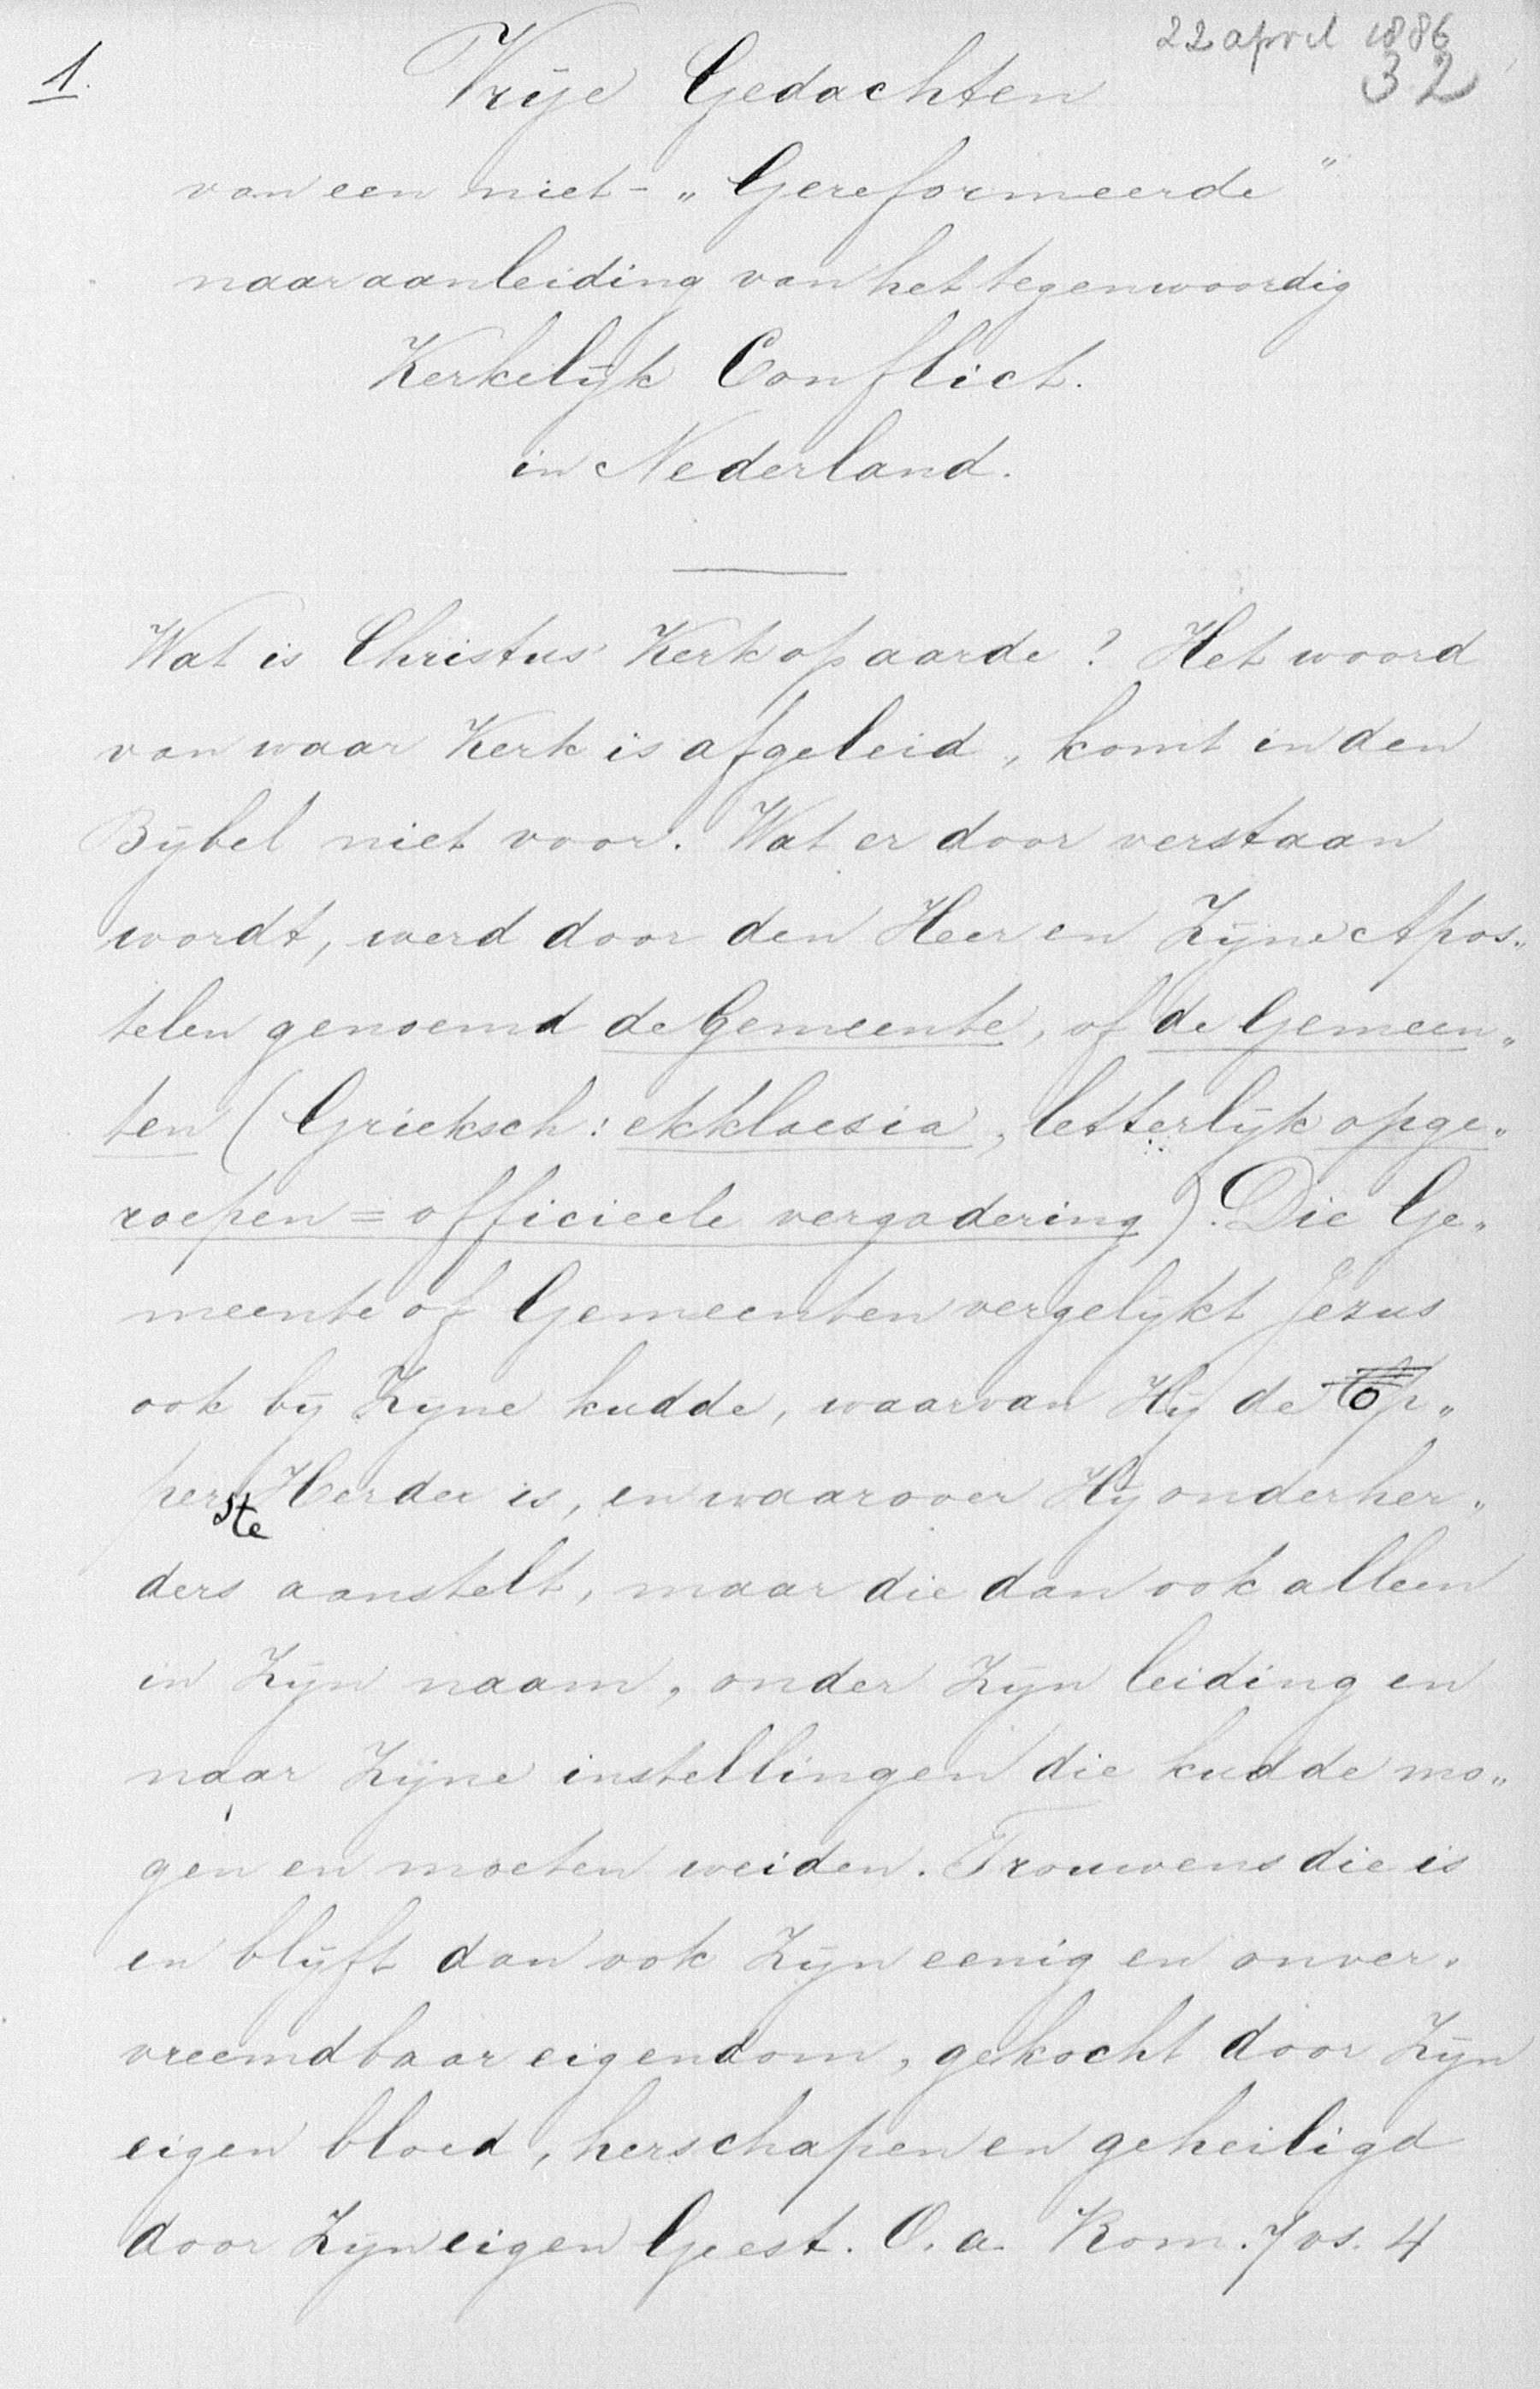 22 april 1886
32
1.
Vrije Gedachten
van een niet- „Gereformeerde"
naar aanleiding van het tegenwoordig
Kerkelijk Conflict.
in Nederland.
Wat is Christus' Kerk op aarde? Het woord
van waar Kerk is afgeleid, komt in den
Bijbel niet voor. Wat er door verstaan
wordt, werd door den Heer en Zijne Apos„
telen genoemd de Gemeente, of de Gemeen„
ten (Grieksch: ekklaesia, letterlijk opge„
roepen = officieele vergadering). Die Ge„
meente of Gemeenten vergelijkt Jezus
ook bij Zijne kudde, waarvan Hij de Op„
perste Herder is, en waarover Hij onderher„
ders aanstelt, maar die dan ook alleen
in Zijn naam, onder Zijn leiding en
naar Zijne instellingen die kudde mo„
gen en moeten weiden. Trouwens die is
en blijft dan ook Zijn eenig en onver„
vreemdbaar eigendom, gekocht door Zijn
eigen bloed, herschapen en geheiligd
door Zijn eigen Geest. O. a. Rom. 7 vs. 4